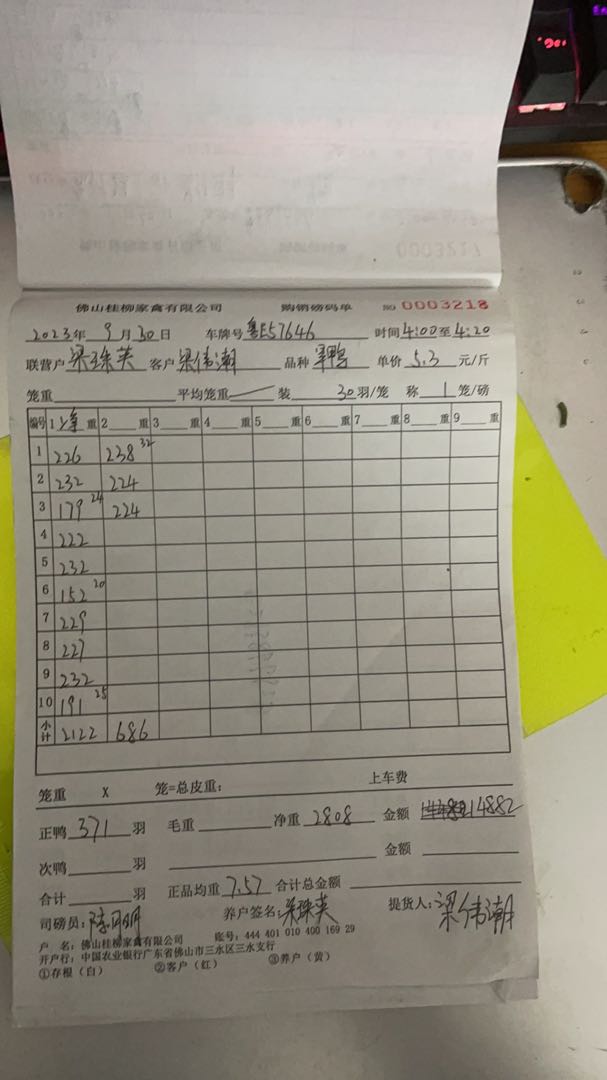 佛山桂柳家禽有限公司 购销磅码单 № 0003218
2023年 9月30日 车牌号 粤E57646 时间 4:00至4:20
联营户 梁珠英 客户 梁伟潮 品种 单价 5.3 元/斤
笼重 平均笼重 装 30 羽/笼 称 1 笼/磅
编号 1 净 重 2 重 3 重 4 重 5 重 6 重 7 重 8 重 9 重
1 226 238 32
2 232 224
3 179 24 224
4 222
5 232
6 152 20
7 229
8 227
9 232
10 191 25
小计 2122 686
笼重 X 笼=总皮重: 上车费
正鸭 371 羽 毛重 净重 2808 金额 14882
次鸭 羽 金额
合计 羽 正品均重 7.57 合计总金额
司磅员: 养户签名: 梁珠英 提货人: 梁伟潮
户 名: 佛山桂柳家禽有限公司 账号: 444 401 010 400 169 29
开户行: 中国农业银行广东省佛山市三水区三水支行
①存根(白) ②客户(红) ③养户(黄)